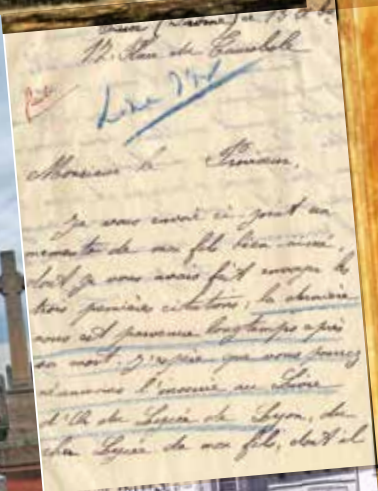 12. Rue du
Livre d'Or
Monsieur le Proviseur,
Je vous envoie ci-joint un
memento de mon fils bien aimé,
dont je vous avais fait envoyer les
trois premières citations, la dernière
nous est parvenue longtemps après
sa mort. J'espère que vous pourrez
néanmoins l'inscrire au Livre
d'Or du Lycée de Lyon, du
cher Lycée de mon fils, dont il